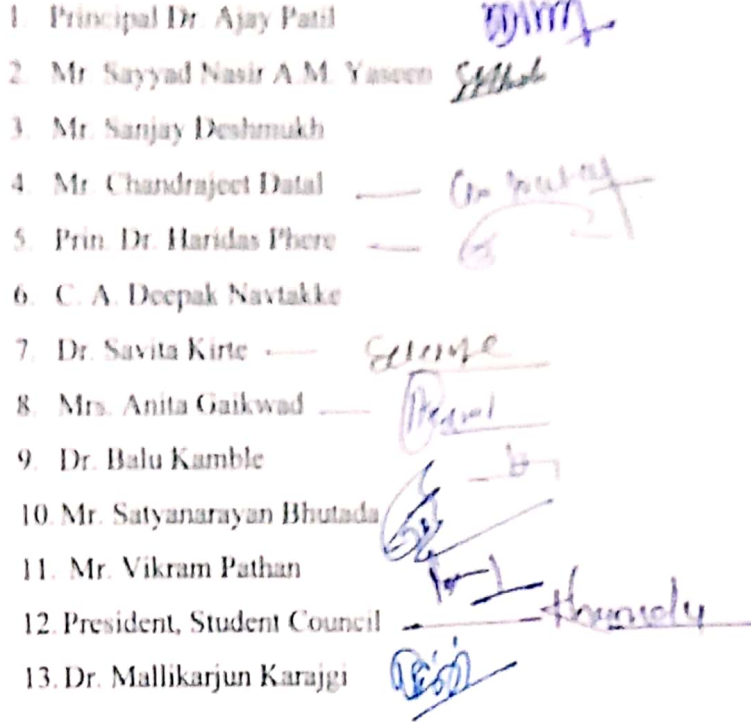 1. Principal Dr. Ajay Patil
2. Mr. Sayyad Nasir A.M. Yaseen
3. Mr. Sanjay Deshmukh
4. Mr. Chandrajeet Datal
5. Prin. Dr. Haridas Phere
6. C. A. Deepak Navtakke
7. Dr. Savita Kirte
8. Mrs. Anita Gaikwad
9. Dr. Balu Kamble
10. Mr. Satyanarayan Bhutada
11. Mr. Vikram Pathan
12. President, Student Council
13. Dr. Mallikarjun Karajgi